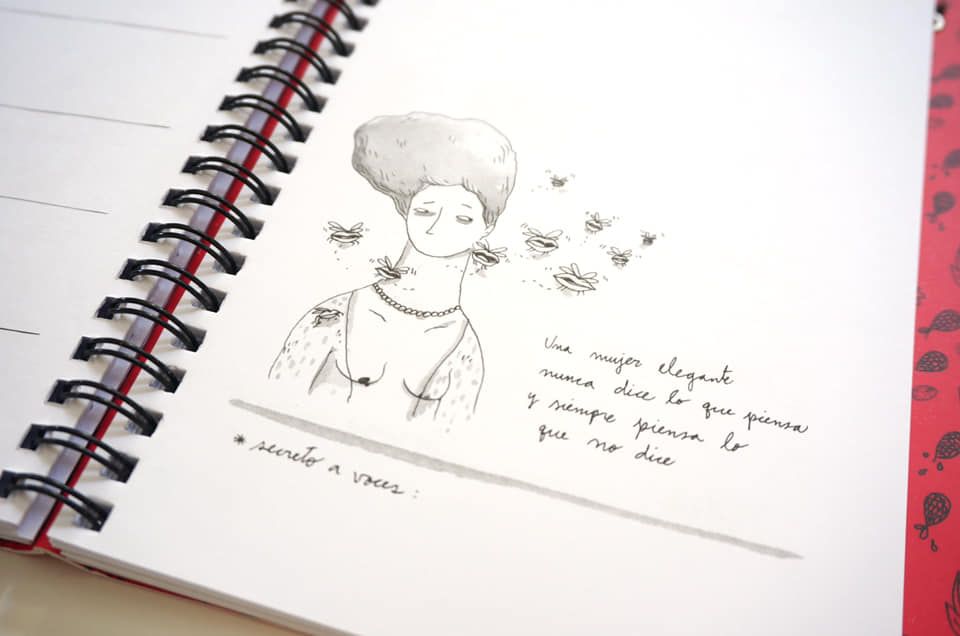 Una mujer elegante
nunca dice lo que piensa
y siempre piensa lo
que no dice
* secreto a voces :